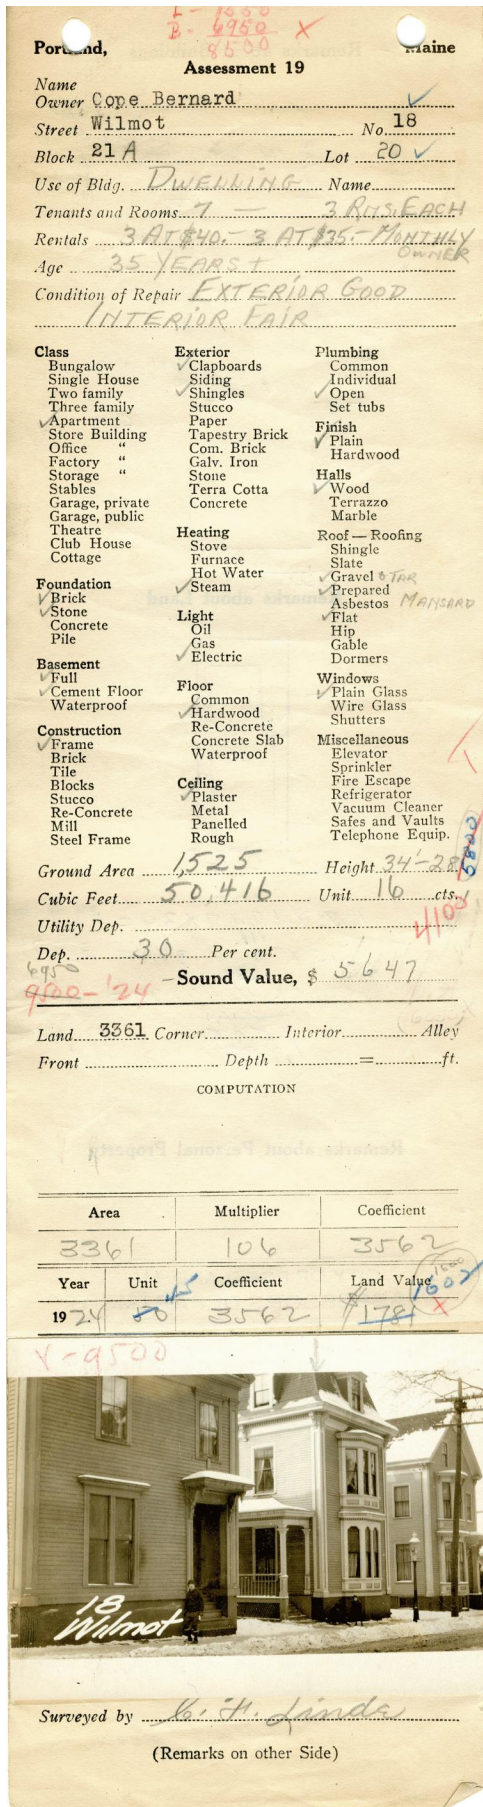 L - 1550
B. 6950 X
8500
Portland, Maine
Assessment 19
Name
Owner Cope Bernard
Street Wilmot No. 18
Block 21 A Lot 20
Use of Bldg. DWELLING Name
Tenants and Rooms 7 — 3 RMS. EACH
Rentals 3 AT $40.- 3 AT $35.- MONTHLY
OWNER
Age 35 YEARS +
Condition of Repair EXTERIOR GOOD
INTERIOR FAIR
Class
Bungalow
Single House
Two family
Three family
Apartment
Store Building
Office "
Factory "
Storage "
Stables
Garage, private
Garage, public
Theatre
Club House
Cottage
Foundation
Brick
Stone
Concrete
Pile
Basement
Full
Cement Floor
Waterproof
Construction
Frame
Brick
Tile
Blocks
Stucco
Re-Concrete
Mill
Steel Frame
Exterior
Clapboards
Siding
Shingles
Stucco
Paper
Tapestry Brick
Com. Brick
Galv. Iron
Stone
Terra Cotta
Concrete
Heating
Stove
Furnace
Hot Water
Steam
Light
Oil
Gas
Electric
Floor
Common
Hardwood
Re-Concrete
Concrete Slab
Waterproof
Ceiling
Plaster
Metal
Panelled
Rough
Plumbing
Common
Individual
Open
Set tubs
Finish
Plain
Hardwood
Halls
Wood
Terrazzo
Marble
Roof — Roofing
Shingle
Slate
Gravel & TAR
Prepared
Asbestos MANSARD
Flat
Hip
Gable
Dormers
Windows
Plain Glass
Wire Glass
Shutters
Miscellaneous
Elevator
Sprinkler
Fire Escape
Refrigerator
Vacuum Cleaner
Safes and Vaults
Telephone Equip.
5800
Ground Area 1,525 Height 34'-28'
Cubic Feet 50,416 Unit 16 cts.
4100
Utility Dep.
Dep. 30 Per cent.
6950
9500-'24
Sound Value, $ 5647
Land 3361 Corner Interior Alley
Front Depth = ft.
COMPUTATION
Area Multiplier Coefficient
3361 106 3562
Year Unit Coefficient Land Value
45 1600
1602
1924 50 3562 $1781 X
V-9500
18
Wilmot
Surveyed by C. H. Linde
(Remarks on other Side)